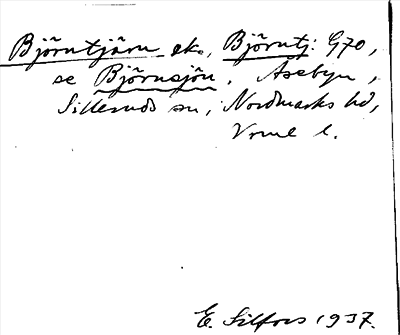 Björntjärn ek., Björntj: G70,
se Björnsjön, Åsebyn,
Silleruds sn, Nordmarks hd,
Vrml l.
E. Silfors 1937.